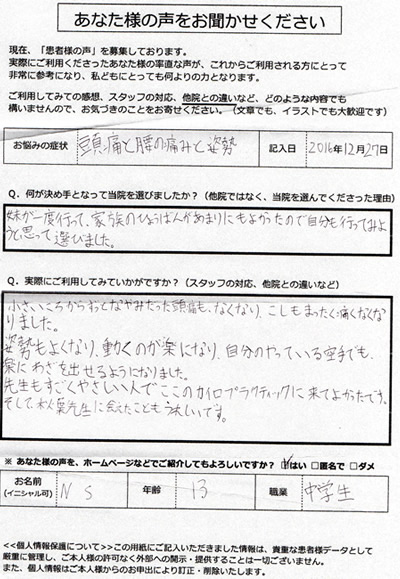 あなた様の声をお聞かせください
現在、「患者様の声」を募集しております。
実際にご利用くださったあなた様の率直な声が、これからご利用される方にとって
非常に参考になり、私どもにとっても何よりの力となります。
ご利用してみての感想、スタッフの対応、他院との違いなど、どのような内容でも
構いませんので、お気づきのことをお寄せください。（文章でも、イラストでも大歓迎です）
お悩みの症状 頭痛と腰の痛みと姿勢 記入日 2016年12月27日
Q．何が決め手となって当院を選びましたか？（他院ではなく、当院を選んでくださった理由）
妹が一度行って、家族のひょうばんがあまりにもよかったので自分も行ってみよ
うと思って選びました。
Q．実際にご利用してみていかがですか？（スタッフの対応、他院との違いなど）
小さいころからずっとなやみだった頭痛も、なくなり、こしもまったく痛くなくな
りました。
姿勢もよくなり、動くのが楽になり、自分のやっている空手でも、
楽にわざを出せるようになりました。
先生もすごくやさしい人でここのカイロプラクティックに来てよかったです。
そして秋葉先生に会えたこともうれしいです。
※ あなた様の声を、ホームページなどでご紹介してもよろしいですか？ ☑はい □匿名で □ダメ
お名前 (イニシャル可) N S 年齢 13 職業 中学生
<<個人情報保護について>>この用紙にご記入いただきました情報は、貴重な患者様データとして
厳重に管理し、ご本人様の許可なく外部への開示・提供することは一切ございません。
また、個人情報はご本人様からのお申出により訂正・削除いたします。